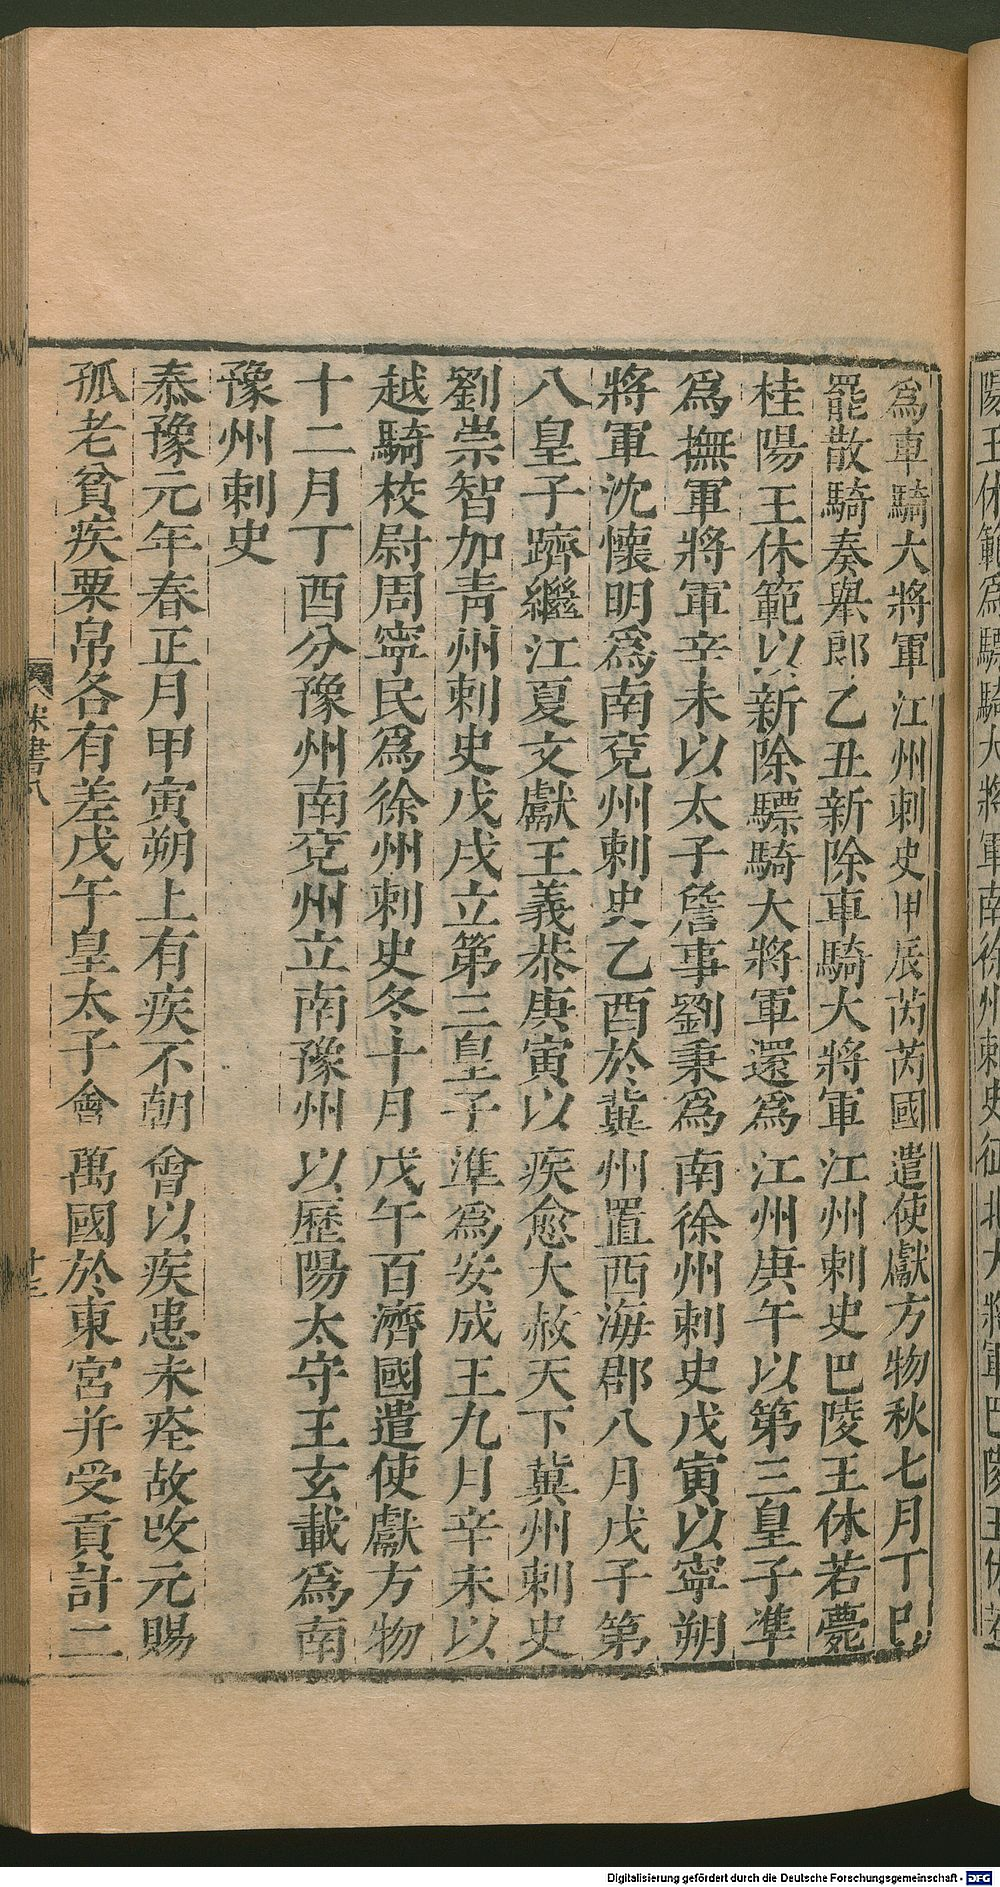 爲車騎大將軍江州刺史甲辰芮芮國遣使獻方物秋七月丁巳
罷散騎奏舉郎乙丑新除車騎大將軍江州刺史巴陵王休若薨
桂陽王休範以新除驃騎大將軍還爲江州庚午以第三皇子準
爲撫軍將軍辛未以太子詹事劉秉爲南徐州刺史戊寅以寧朔
將軍沈懷明爲南兗州刺史乙酉於冀州置西海郡八月戊子第
八皇子躋繼江夏文獻王義恭庚寅以疾愈大赦天下冀州刺史
劉崇智加靑州刺史戊戌立第三皇子準爲安成王九月辛未以
越騎校尉周寧民爲徐州刺史冬十月戊午百濟國遣使獻方物
十二月丁酉分豫州南兗州立南豫州以歷陽太守王玄載爲南
豫州刺史
泰豫元年春正月甲寅朔上有疾不朝會以疾患未痊故攺元賜
孤老貧疾粟帛各有差戊午皇太子會萬國於東宮并受貢計二
宋書八
十三
陽王休範爲驃騎大將軍南徐州刺史征北大將軍巴陵王休若
Digitalisierung gefördert durch die Deutsche Forschungsgemeinschaft - DFG